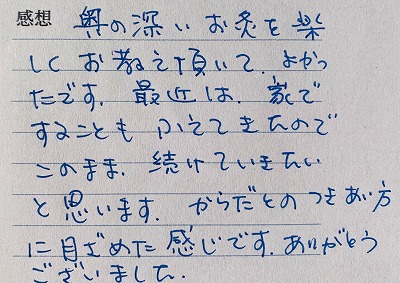 感想 奥の深いお灸を楽
しくお教え頂いて、よかっ
たです。最近は、家で
することもふえてきたので
このまま、続けていきたい
と思います。からだとのつきあい方
に目ざめた感じです。ありがとう
ございました。